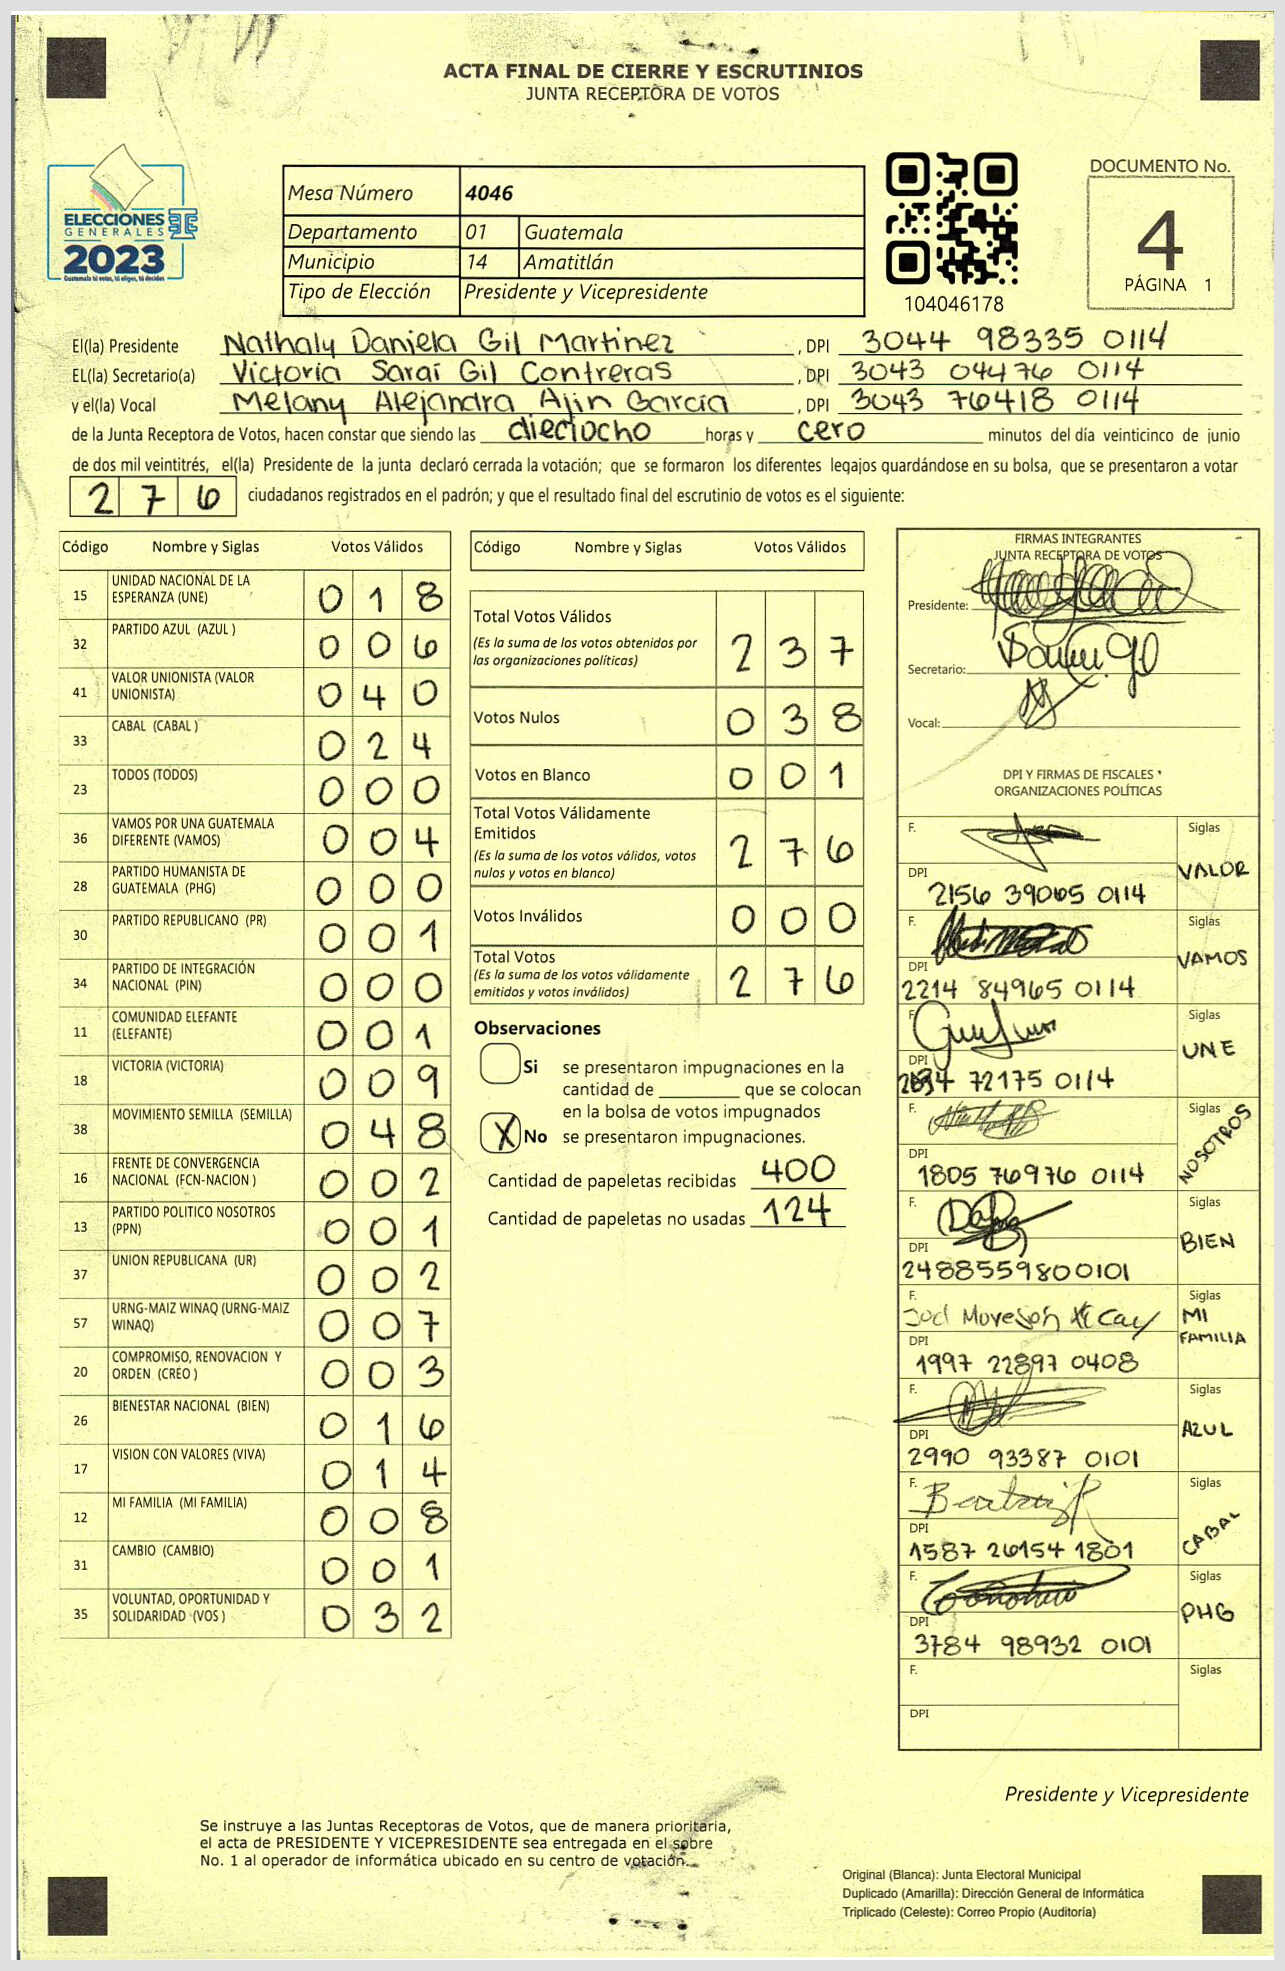 ACTA FINAL DE CIERRE Y ESCRUTINIOS
JUNTA RECEPTORA DE VOTOS
ELECCIONES
GENERALES
2023
Guatemala tú votas, tú eliges, tú decides
Mesa Número 4046
Departamento 01 Guatemala
Municipio 14 Amatitlán
Tipo de Elección Presidente y Vicepresidente
104046178
DOCUMENTO No.
4
PÁGINA 1
El(la) Presidente Nathaly Daniela Gil Martinez, DPI 3044 98335 0114
EL(la) Secretario(a) Victoria Sarai Gil Contreras, DPI 3043 04476 0114
y el(la) Vocal Melany Alejandra Ajin Garcia, DPI 3043 76418 0114
de la Junta Receptora de Votos, hacen constar que siendo las dieciocho horas y cero minutos del día veinticinco de junio
de dos mil veintitrés, el(la) Presidente de la junta declaró cerrada la votación; que se formaron los diferentes legajos guardándose en su bolsa, que se presentaron a votar
276 ciudadanos registrados en el padrón; y que el resultado final del escrutinio de votos es el siguiente:
Código Nombre y Siglas Votos Válidos
15 UNIDAD NACIONAL DE LA ESPERANZA (UNE) 018
32 PARTIDO AZUL (AZUL ) 006
41 VALOR UNIONISTA (VALOR UNIONISTA) 040
33 CABAL (CABAL ) 024
23 TODOS (TODOS) 000
36 VAMOS POR UNA GUATEMALA DIFERENTE (VAMOS) 004
28 PARTIDO HUMANISTA DE GUATEMALA (PHG) 000
30 PARTIDO REPUBLICANO (PR) 001
34 PARTIDO DE INTEGRACIÓN NACIONAL (PIN) 000
11 COMUNIDAD ELEFANTE (ELEFANTE) 001
18 VICTORIA (VICTORIA) 009
38 MOVIMIENTO SEMILLA (SEMILLA) 048
16 FRENTE DE CONVERGENCIA NACIONAL (FCN-NACION ) 002
13 PARTIDO POLITICO NOSOTROS (PPN) 001
37 UNION REPUBLICANA (UR) 002
57 URNG-MAIZ WINAQ (URNG-MAIZ WINAQ) 007
20 COMPROMISO, RENOVACION Y ORDEN (CREO ) 003
26 BIENESTAR NACIONAL (BIEN) 016
17 VISION CON VALORES (VIVA) 014
12 MI FAMILIA (MI FAMILIA) 008
31 CAMBIO (CAMBIO) 001
35 VOLUNTAD, OPORTUNIDAD Y SOLIDARIDAD (VOS ) 032
Código Nombre y Siglas Votos Válidos
Total Votos Válidos 237
(Es la suma de los votos obtenidos por
las organizaciones políticas)
Votos Nulos 038
Votos en Blanco 001
Total Votos Válidamente
Emitidos 276
(Es la suma de los votos válidos, votos
nulos y votos en blanco)
Votos Inválidos 000
Total Votos 276
(Es la suma de los votos válidamente
emitidos y votos inválidos)
Observaciones
Si se presentaron impugnaciones en la
cantidad de ________ que se colocan
en la bolsa de votos impugnados
X No se presentaron impugnaciones.
Cantidad de papeletas recibidas 400
Cantidad de papeletas no usadas 124
FIRMAS INTEGRANTES
JUNTA RECEPTORA DE VOTOS
Presidente:
Secretario:
Vocal:
DPI Y FIRMAS DE FISCALES
ORGANIZACIONES POLÍTICAS
F. Siglas VALOR
DPI 2156 39065 0114
F. Siglas VAMOS
DPI 2214 84965 0114
F. Siglas UNE
DPI 72175 0114
F. Siglas NOSOTROS
DPI 1805 76976 0114
F. Siglas BIEN
DPI 2488559800101
F. Siglas MI FAMILIA
DPI 1997 22897 0408
F. Siglas AZUL
DPI 2990 93387 0101
F. Siglas CABAL
DPI 1587 26154 1801
F. Siglas PHG
DPI 3784 98932 0101
F. Siglas
DPI
Presidente y Vicepresidente
Se instruye a las Juntas Receptoras de Votos, que de manera prioritaria,
el acta de PRESIDENTE Y VICEPRESIDENTE sea entregada en el sobre
No. 1 al operador de informática ubicado en su centro de votación.
Original (Blanca): Junta Electoral Municipal
Duplicado (Amarilla): Dirección General de Informática
Triplicado (Celeste): Correo Propio (Auditoría)